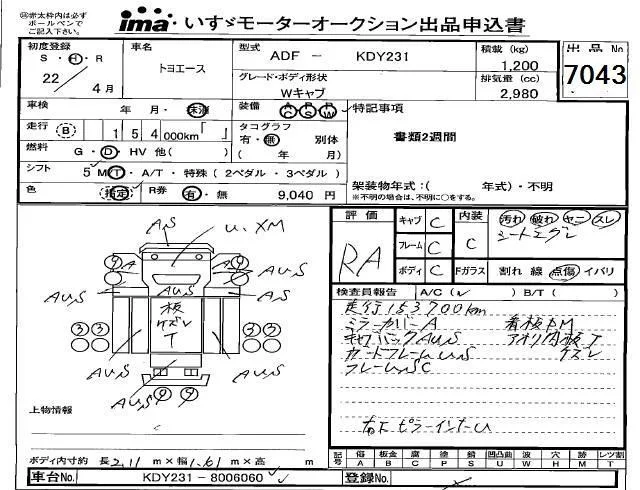 ㊟赤太枠内は必ず
ボールペンで
ご記入下さい。
ima いすゞモーターオークション出品申込書
初度登録
S・H・R
22 / 4月
車名
トヨエース
型式
ADF - KDY231
グレード・ボディ形状
Wキャブ
積載 (kg)
1,200
排気量 (cc)
2,980
出品No
7043
車検
年・月・抹消
装備
AC PS PW
特記事項
書類2週間
走行 B 154 000km「 」
タコグラフ
有・無 別体
( 年 月)
燃料 G・D・HV 他( )
シフト 5 MT・A/T・特殊(2ペダル・3ペダル)
架装物年式:( 年式)・不明
※不明の場合は、不明に○をする。
色 指定
R券 有・無 9,040 円
評価
RA
キャブ C
フレーム C
ボディ C
内装
C
Fガラス
汚れ 破れ ヤニ スレ
割れ 線 点傷 イバリ
検査員報告 A/C(レ) B/T( )
走行153700km
ミラーカバーA
看板PM
キャブバックAUS
アオリ内板T
ガードフレームUS
ケズレ
フレームSC
A,S
U.XM
A
A
AUS
A,S
板
ケズレ
T
3 3
3 3
AUS
AUS
AUS
AUS
上物情報
ボディ内寸約 長2.11m×幅1.61m×高 m
記号
傷 A
板金 B
腐 C
塗 P
錆 S
凹凸曲 U
波 W
穴 H
跡 M
レツ割 T
車台No.
KDY231-8006060
登録No.